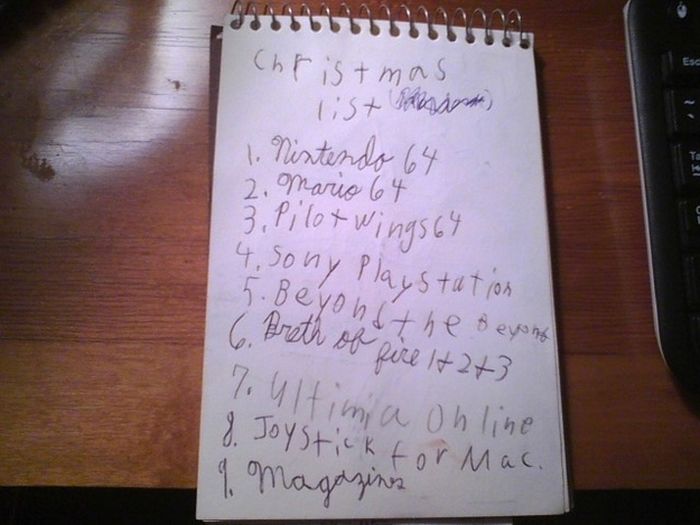 Christmas
list
1. Nintendo 64
2. Mario 64
3. Pilot wings 64
4. Sony Playstation
5. Beyond the Beyond
6. Breth of fire 1+2+3
7. Ultimia Online
8. Joystick for Mac.
9. Magazines
Esc
~